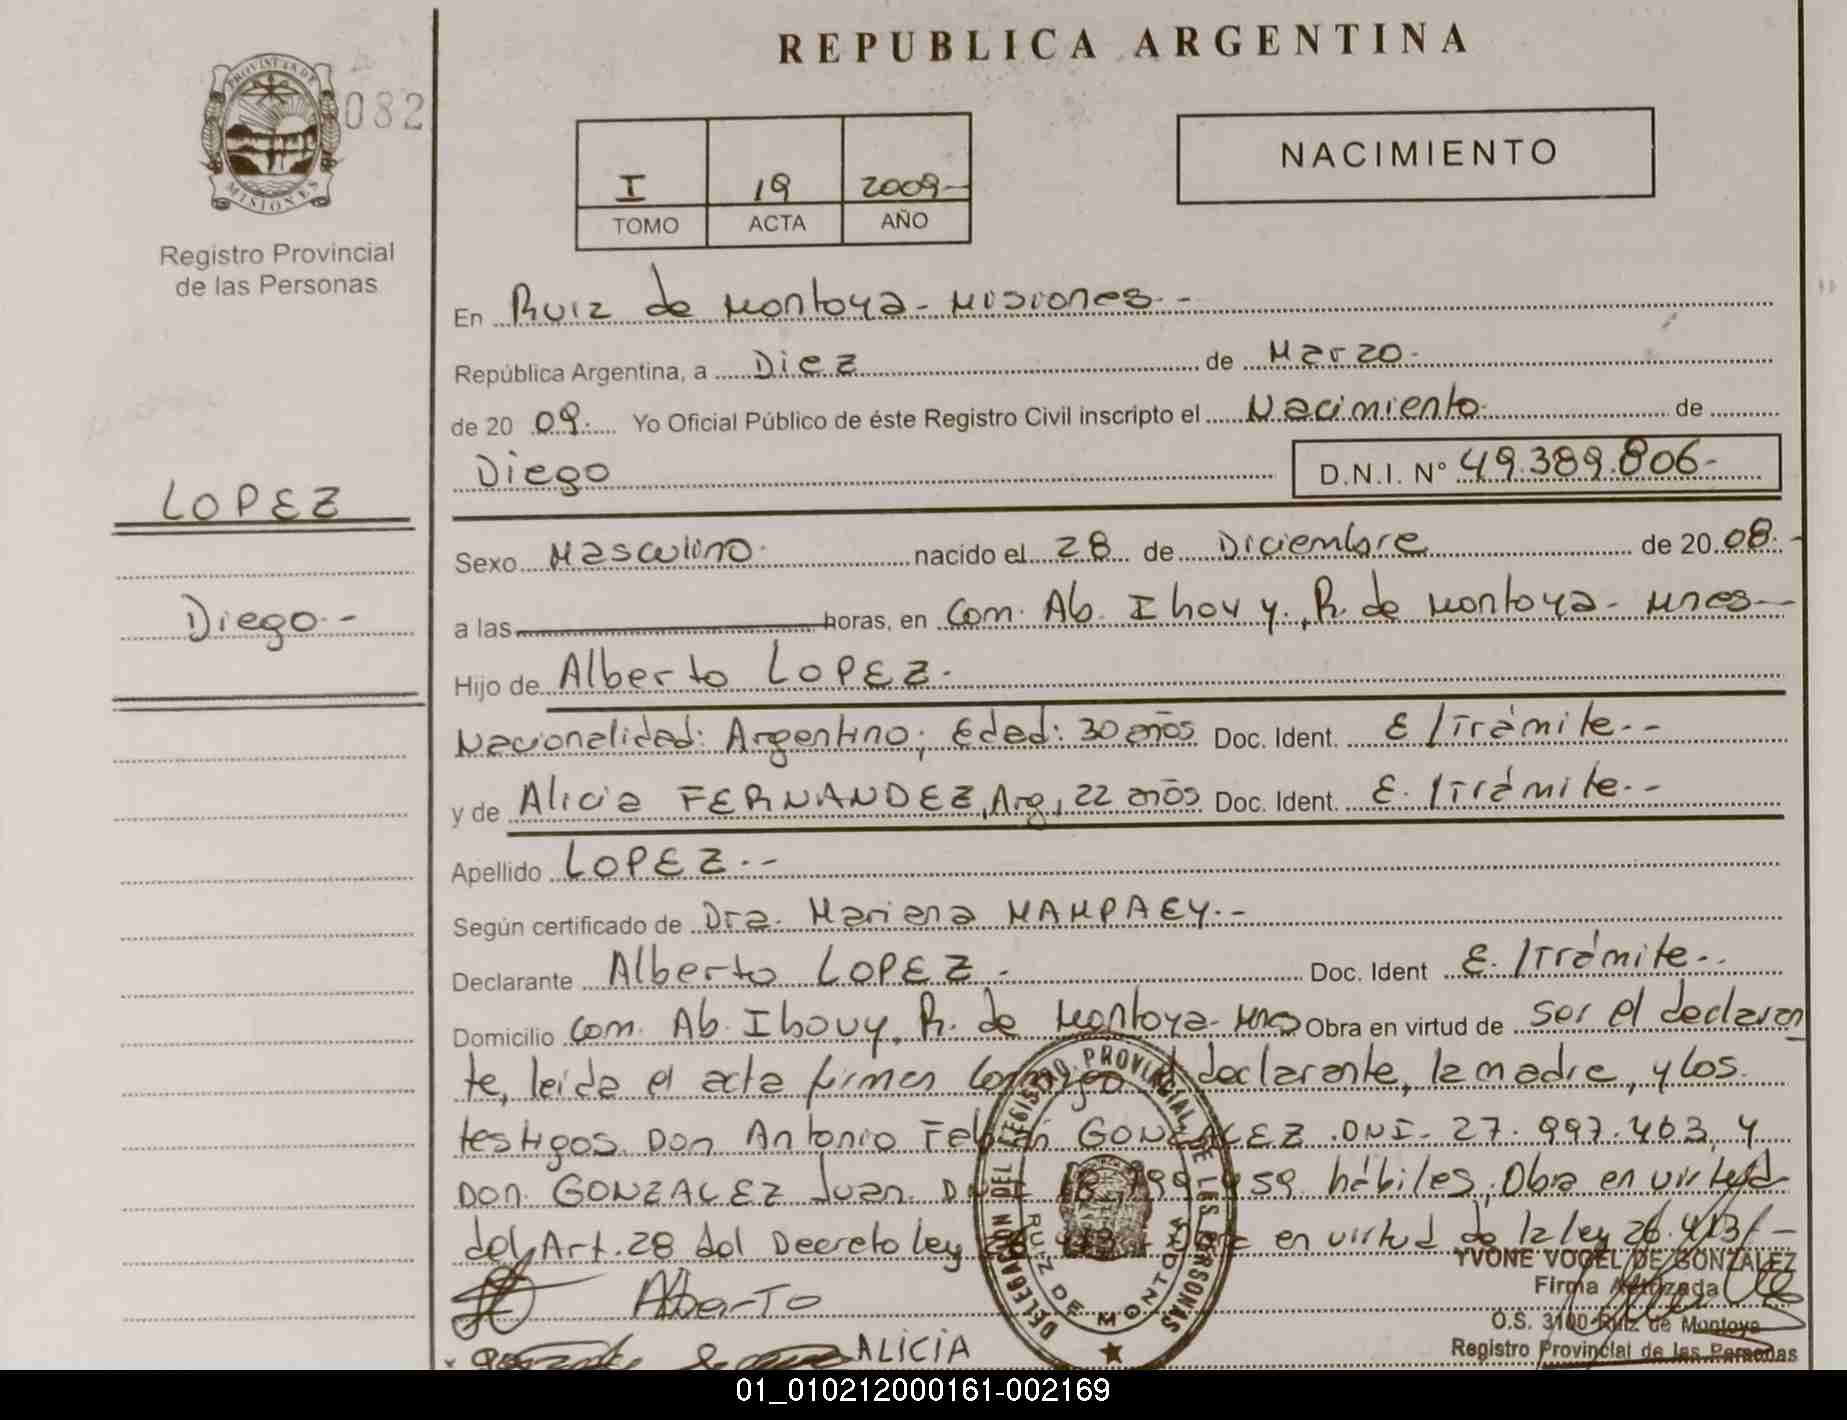 REPUBLICA ARGENTINA
PROVINCIA DE
MISIONES
082
Registro Provincial
de las Personas
I 19 2009-
TOMO ACTA AÑO
NACIMIENTO
En Ruiz de Montoya - Misiones.-
República Argentina, a Diez de Marzo.
de 20 09. Yo Oficial Público de éste Registro Civil inscripto el Nacimiento. de
Diego D.N.I. N° 49.389.806-
LOPEZ
Diego.-
Sexo Masculino. nacido el 28 de Diciembre de 20 08.-
a las horas, en Com. Ab. Ibovy., R. de Montoya- Mnes-
Hijo de Alberto LOPEZ.
Nacionalidad: Argentino; Edad: 30 años Doc. Ident. E/Trámite.-
y de Alicia FERNANDEZ, Arg, 22 años Doc. Ident. E./Trámite.-
Apellido LOPEZ.-
Según certificado de Dra. Mariana MAMPAEY.-
Declarante Alberto LOPEZ.- Doc. Ident E./Trámite..
Domicilio Com. Ab. Ibovy, R. de Montoya- Mnes Obra en virtud de ser el declaran
te, leida el acta firman conmigo el declarante, la madre, y los
testigos. Don Antonio GONZALEZ. DNI- 27.997.463, y
Don. GONZALEZ Juan. hábiles. Obra en virtud
del Art. 28 del Decreto ley en virtud de la ley 26.413/-
DELEGACION DEL REGISTRO PROVINCIAL DE LAS PERSONAS
RUIZ DE MONTOYA
YVONE VOGEL DE GONZALEZ
Firma Autorizada
O.S. 3100-Ruiz de Montoya
Registro Provincial de las Personas
Alberto
ALICIA
01_010212000161-002169